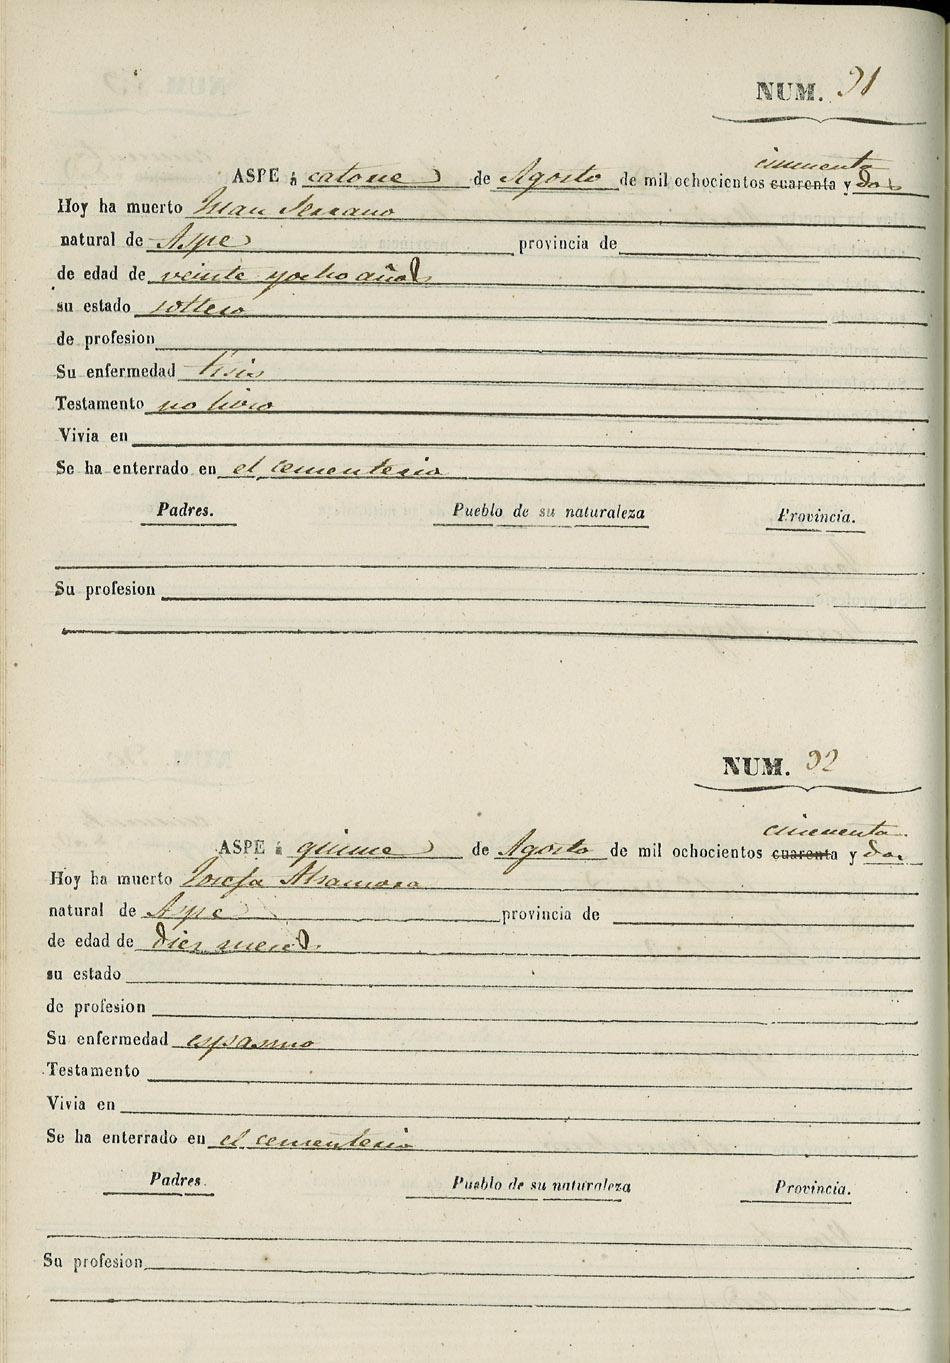 NUM. 91
cincuenta
ASPE á catorce de Agosto de mil ochocientos cuarenta y dos
Hoy ha muerto Juan Serrano
natural de Aspe provincia de
de edad de veinte y ocho años
su estado soltero
de profesion
Su enfermedad tisis
Testamento no hizo
Vivia en
Se ha enterrado en el cementerio
Padres. Pueblo de su naturaleza Provincia.
Su profesion
NUM. 92
cincuenta
ASPE á quince de Agosto de mil ochocientos cuarenta y dos
Hoy ha muerto Josefa
natural de Aspe provincia de
de edad de diez meses.
su estado
de profesion
Su enfermedad espasmo
Testamento
Vivia en
Se ha enterrado en el cementerio
Padres. Pueblo de su naturaleza Provincia.
Su profesion